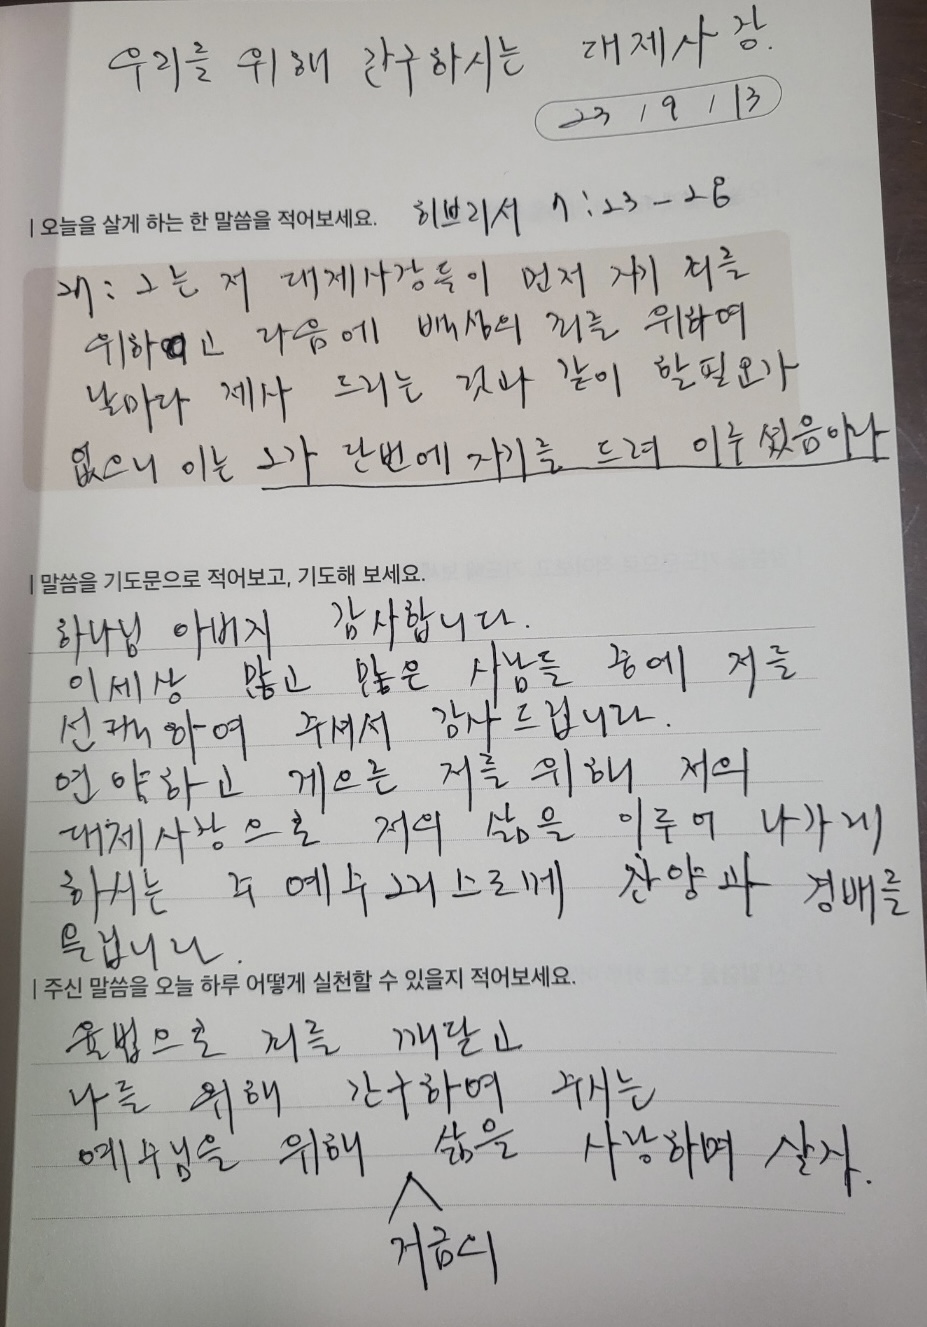 우리를 위해 간구하시는 대제사장.
23 / 9 / 13
| 오늘을 살게 하는 한 말씀을 적어보세요. 히브리서 7:23-28
27: 그는 저 대제사장들이 먼저 자기 죄를
위하여고 다음에 백성의 죄를 위하여
날마다 제사 드리는 것과 같이 할필요가
없으니 이는 그가 단번에 자기를 드려 이루셨음이니라
| 말씀을 기도문으로 적어보고, 기도해 보세요.
하나님 아버지 감사합니다.
이세상 많고 많은 사람들 중에 저를
선택하여 주셔서 감사드립니다.
연약하고 게으른 저를 위해 저의
대제사장으로 저의 삶을 이루어 나가게
하시는 주 예수그리스도께 찬양과 경배를
드립니다.
| 주신 말씀을 오늘 하루 어떻게 실천할 수 있을지 적어보세요.
율법으로 죄를 깨닫고
나를 위해 간구하여 주시는
예수님을 위해 삶을 사랑하며 살자.
지금의